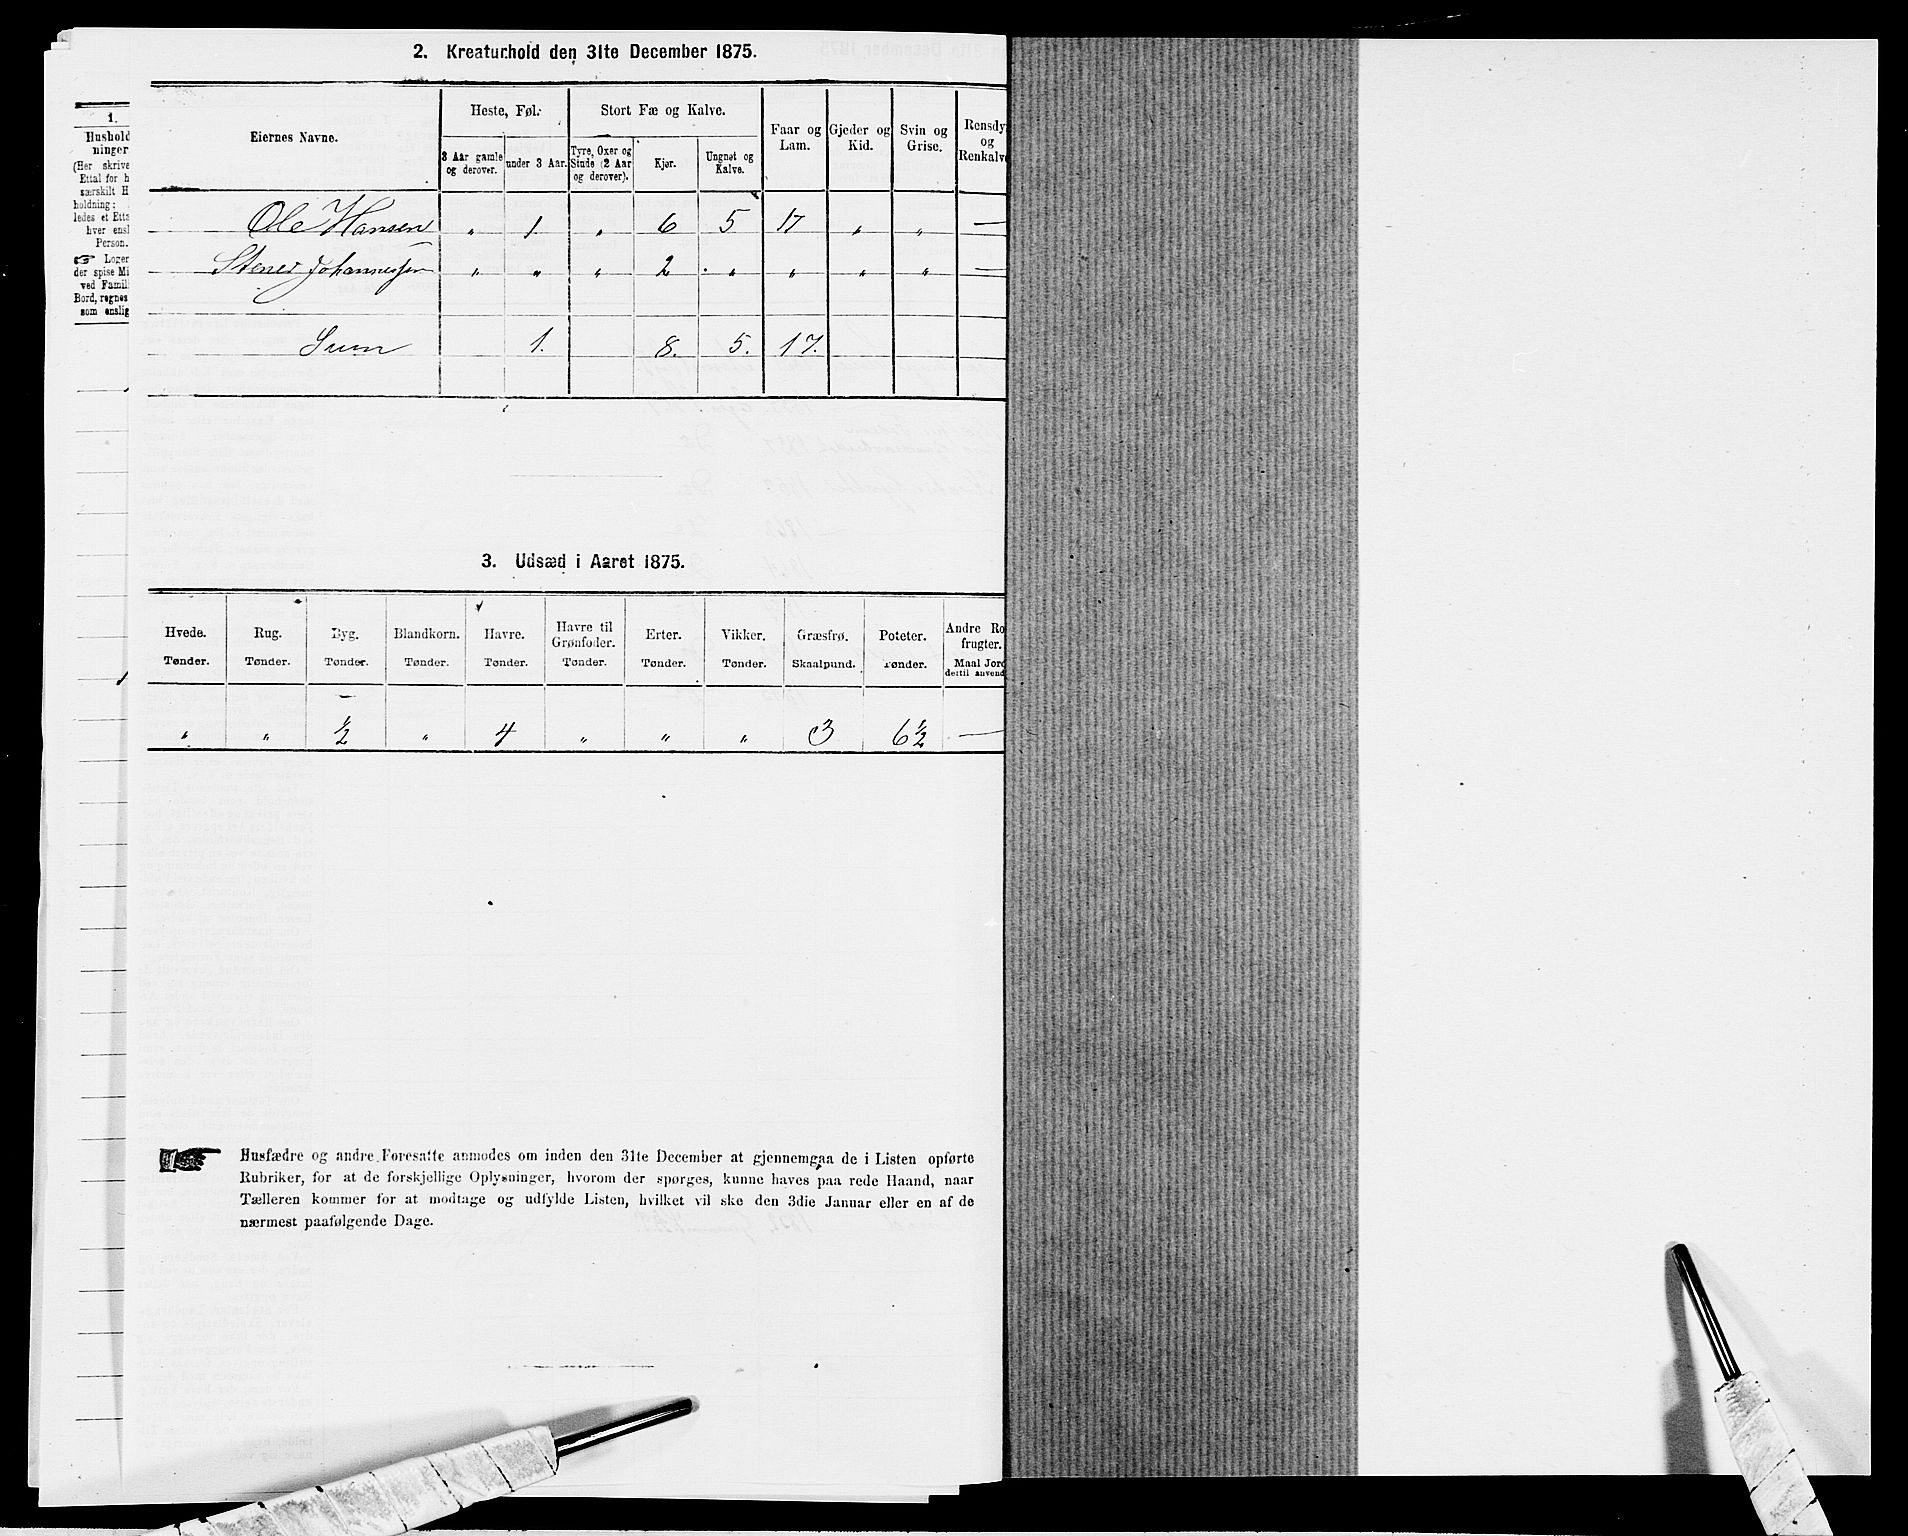 2. Kreaturhold den 31te December 1875.
Eiernes Navne.
Heste, Føl.
Stort Fæ og Kalve.
Faar og Lam.
Gjeder og Kid.
Svin og Grise.
Rensdy
og
Renkalve
3 Aar gamle og derover.
under 3 Aar.
Tyre, Oxer og Stude (2 Aar og derover).
Kjør.
Ungnøt og Kalve.
Ole Hansen " 1 " 6 5 17 " " —
Stener Johannessen " " " 2 " " " " —
Sum 1. 8. 5. 17.
1.
Hushold
ninger.
(Her skrive
Ettal for h
særskilt H
holdning;
ledes et Etta
hver ensl
Person.
☞ Loger
der spise Mi
ved Famili
Bord, regnes
som enslig
3. Udsæd i Aaret 1875.
Hvede. Rug. Byg. Blandkorn. Havre. Havre til Grønfoder. Erter. Vikker. Græsfrø. Poteter. Andre Ro frugter.
Tønder. Tønder. Tønder. Tønder. Tønder. Tønder. Tønder. Tønder. Skaalpund. Tønder. Maal Jord dertil anvend
" " ½ " 4 " " " 3 6½ —
☞ Husfædre og andre Foresatte anmodes om inden den 31te December at gjennemgaa de i Listen opførte
Rubriker, for at de forskjellige Oplysninger, hvorom der spørges, kunne haves paa rede Haand, naar
Tælleren kommer for at modtage og udfylde Listen, hvilket vil ske den 3die Januar eller en af de
nærmest paafølgende Dage.